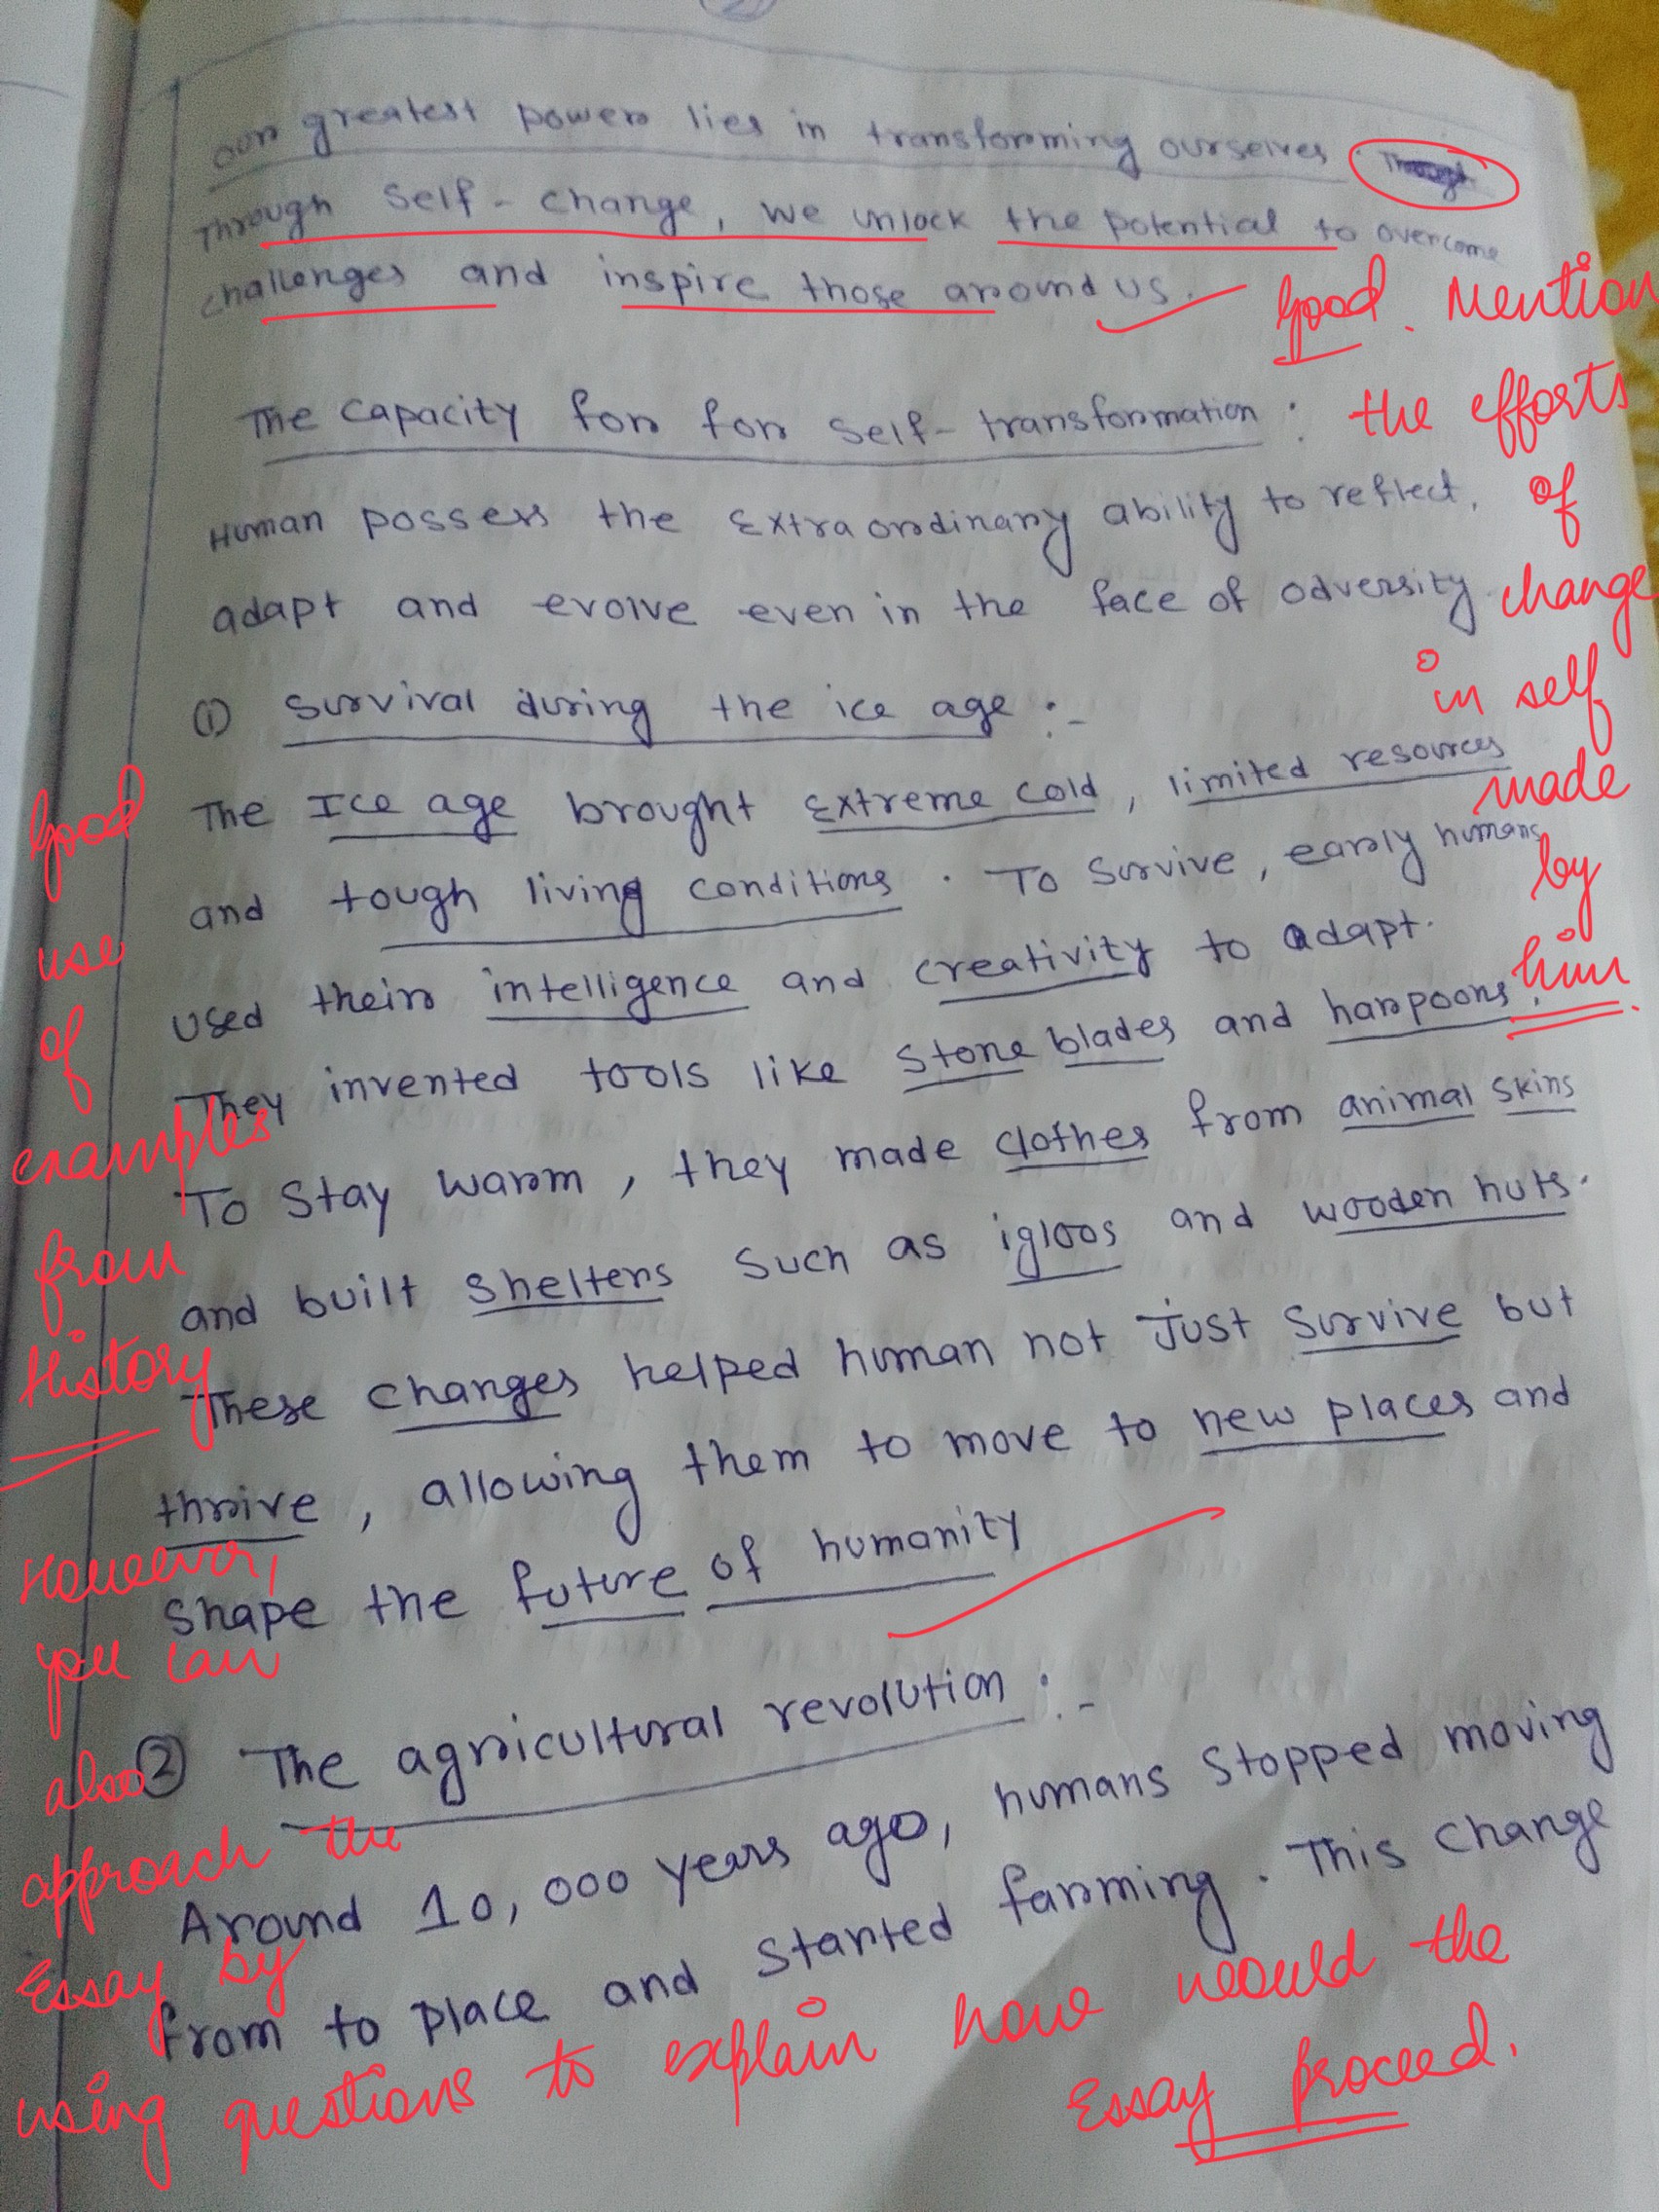 our greatest power lies in transforming ourselves.
Through self-change, we unlock the potential to overcome
challenges and inspire those around us.
The capacity for for self-transformation :
Human possess the extraordinary ability to reflect,
adapt and evolve even in the face of adversity.
① Survival during the ice age :-
The Ice age brought extreme cold, limited resources
and tough living conditions. To survive, early humans
used their intelligence and creativity to adapt.
They invented tools like stone blades and harpoons.
To stay warm, they made clothes from animal skins
and built shelters such as igloos and wooden huts.
These changes helped human not just survive but
thrive, allowing them to move to new places and
shape the future of humanity
② The agricultural revolution :-
Around 10,000 years ago, humans stopped moving
from to place and started farming. This change
Good. Mention
the efforts
of
change
in self
made
by
him.
Good
use
of
examples
from
History
However,
you can
also
approach the
Essay by
using questions to explain how would the
Essay proceed.